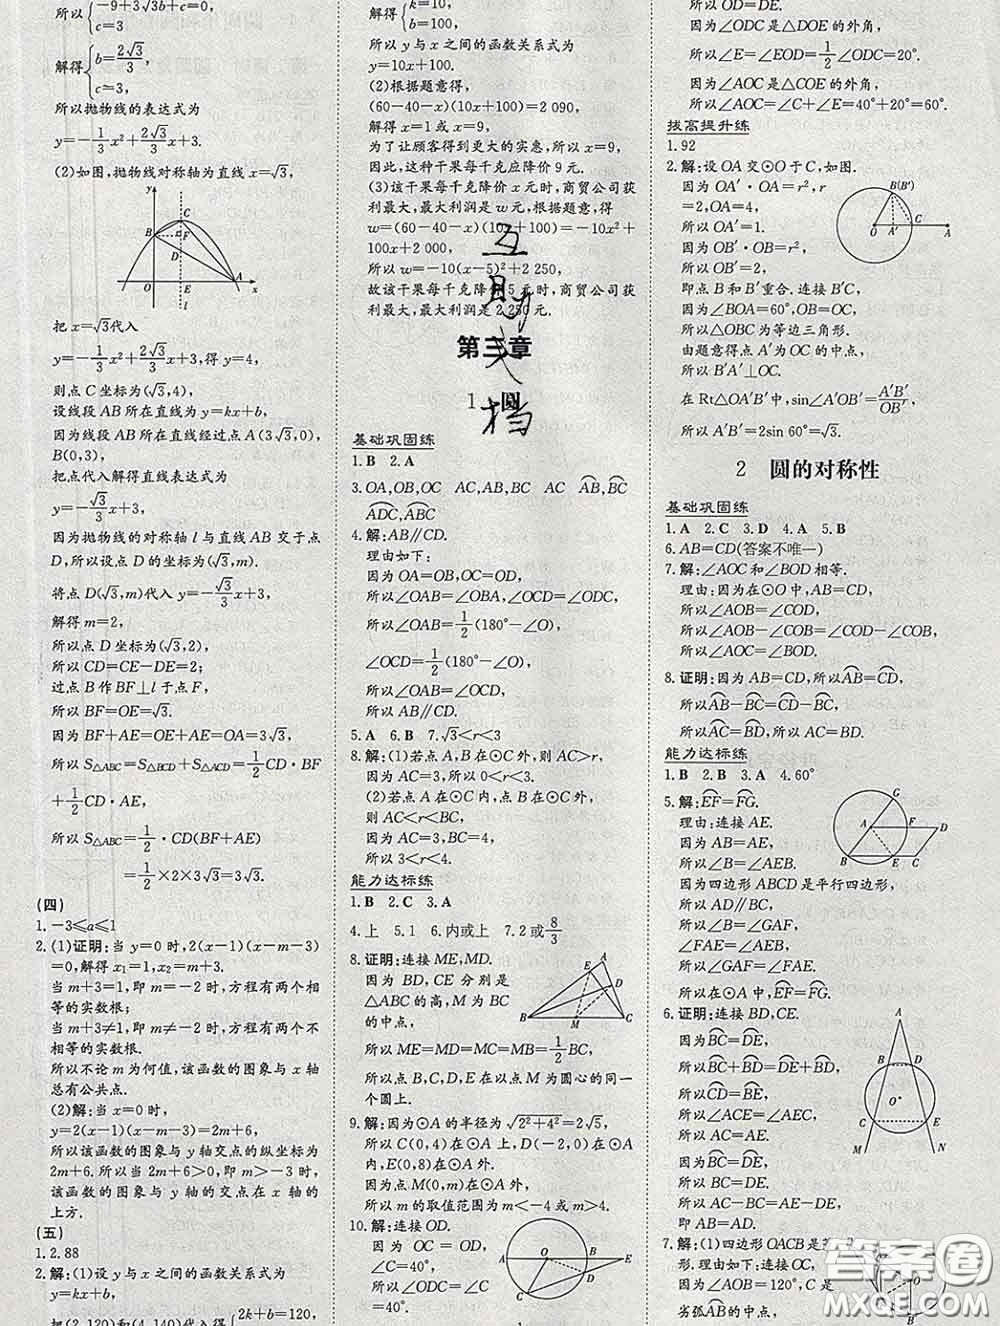 所以{-9+3√3b+c=0,
c=3
解得{b=2√3/3,
c=3,
所以抛物线的表达式为
y=-1/3x²+2√3/3x+3.
(2)如图,抛物线对称轴为直线x=√3,
y
C
B
F
D
A
O
E
x
l
把x=√3代入
y=-1/3x²+2√3/3x+3,得y=4,
则点C坐标为(√3,4),
设线段AB所在直线为y=kx+b,
因为线段AB所在直线经过点A(3√3,0),
B(0,3),
把点代入解得直线表达式为
y=-√3/3x+3,
因为抛物线的对称轴l与直线AB交于点
D,所以设点D的坐标为(√3,m).
将点D(√3,m)代入y=-√3/3x+3,
解得m=2,
所以点D坐标为(√3,2),
所以CD=CE-DE=2;
过点B作BF⊥l于点F,
所以BF=OE=√3.
因为BF+AE=OE+AE=OA=3√3,
所以S△ABC=S△BCD+S△ACD=1/2CD·BF
+1/2CD·AE,
所以S△ABC=1/2·CD(BF+AE)
=1/2×2×3√3=3√3.
(四)
1.-3≤a≤1
2.(1)证明:当y=0时,2(x-1)(x-m-3)
=0,解得x₁=1,x₂=m+3.
当m+3=1,即m=-2时,方程有两个相
等的实数根;
当m+3≠1,即m≠-2时,方程有两个不
相等的实数根.
所以不论m为何值,该函数的图象与x轴
总有公共点.
(2)解:当x=0时,
y=2(x-1)(x-m-3)=2m+6,
所以该函数的图象与y轴交点的纵坐标为
2m+6.所以当2m+6>0,即m>-3时,
该函数的图象与y轴的交点在x轴的
上方.
(五)
1.2.88
2.解:(1)设y与x之间的函数关系式为
y=kx+b,
把(2,120)和(4,140)代入得{2k+b=120,
解得{k=10,
所以y与x之间的函数关系式为
y=10x+100.
(2)根据题意得,
(60-40-x)(10x+100)=2 090,
解得x=1或x=9,
为了让顾客得到更大的实惠,所以x=9,
因此,这种干果每千克应降价9元.
(3)该干果每千克降价x元时,商贸公司获
利最大,最大利润是w元,根据题意,得
w=(60-40-x)(10x+100)=-10x²+
100x+2 000,
所以w=-10(x-5)²+2 250,
故该干果每千克降价5元时,商贸公司获利
最大,最大利润是2 250元.
第三章
1 圆
基础巩固练
1.B 2.A
3.OA,OB,OC AC,AB,BC AC AB,BC
ADC,ABC
4.解:AB∥CD.
理由如下:
因为OA=OB,OC=OD,
所以∠OAB=∠OBA,∠OCD=∠ODC,
所以∠OAB=1/2(180°-∠O),
∠OCD=1/2(180°-∠O),
所以∠OAB=∠OCD,
所以AB∥CD.
5.A 6.B 7.√3<r<3
8.解:(1)若点A,B在⊙C外,则AC>r,
因为AC=3,所以0<r<3.
(2)若点A在⊙C内,点B在⊙C外,
则AC<r<BC,
因为AC=3,BC=4,
所以3<r<4.
能力达标练
1.B 2.C 3.A
4.上 5.1 6.内或上 7.2或8/3
8.证明:连接ME,MD.
因为BD,CE分别是
△ABC的高,M为BC
的中点,
A
E
D
B
M
C
所以ME=MD=MC=MB=1/2BC,
所以点B,C,D,E在以点M为圆心的同一
个圆上.
9.解:因为⊙A的半径为√2²+4²=2√5,
所以C(0,4)在⊙A上,D(-2,0)在⊙A内,
E(0,8)在⊙A外.
因为点M(0,m)在⊙A外,
所以m的取值范围为m<-4或m>4.
10.解:连接OD.
因为OC=OD,
∠C=40°,
所以∠ODC=∠C
=40°.
A
O
B
E
D
C
所以OD=DE.
因为∠ODC是△DOE的外角,
所以∠E=∠EOD=1/2∠ODC=20°.
因为∠AOC是△COE的外角,
所以∠AOC=∠C+∠E=40°+20°=60°.
拔高提升练
1.92
2.解:设OA交⊙O于C,如图.
因为OA'·OA=r²,r
=2,OA=4,
所以OA'=1.
因为OB'·OB=r²,
所以OB'=2,
即点B和B'重合.连接B'C,
因为∠BOA=60°,OB=OC,
所以△OBC为等边三角形.
由题意得点A'为OC的中点,
所以B'A'⊥OC.
在Rt△OA'B'中,sin∠A'OB'=A'B'/OB',
所以A'B'=2sin 60°=√3.
B(B')
O
A'
C
A
2 圆的对称性
基础巩固练
1.A 2.C 3.D 4.A 5.B
6.AB=CD(答案不唯一)
7.解:∠AOC和∠BOD相等.
理由:因为在⊙O中,AB=CD,
所以∠AOB=∠COD,
所以∠AOB-∠COB=∠COD-∠COB,
所以∠AOC=∠BOD.
8.证明:因为AB=CD,所以AB=CD,
所以AB-BC=CD-BC,
所以AC=BD,所以AC=BD.
能力达标练
1.B 2.B 3.A 4.60°
5.解:EF=FG.
理由:连接AE.
所以AB=AE,
所以∠B=∠AEB.
因为四边形ABCD是平行四边形,
所以AD∥BC,
所以∠B=∠GAF,
∠FAE=∠AEB,
所以∠GAF=∠FAE.
所以在⊙A中,EF=FG.
G
A
F
D
B
E
C
6.证明:连接BD,CE.
因为BC=DE,
所以BC+BD=DE+BD,
所以CD=BE,
所以∠ACE=∠AEC,
所以AC=AE.
因为BC=DE,
所以BC=DE,
所以AC-BC=AE-DE,
即AB=AD.
A
B
D
O
C
E
M
N
7.解:(1)四边形OACB是菱形.
理由:因为∠AOB=120°,C是
劣弧AB的中点,
互助文档
答案圈
MXQE.COM